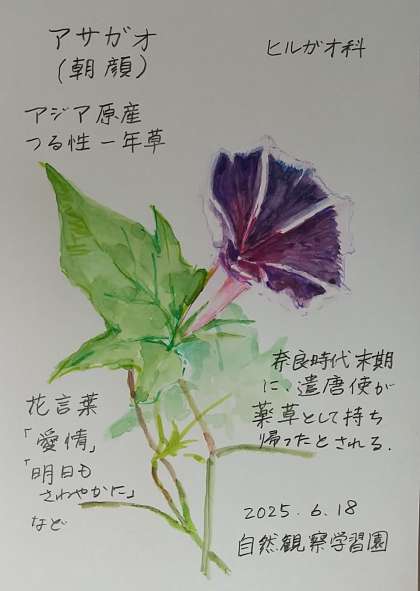 アサガオ
(朝顔)
ヒルガオ科
アジア原産
つる性一年草
奈良時代末期
に、遣唐使が
薬草として持ち
帰ったとされる.
花言葉
「愛情」
「明日も
さわやかに」
など
2025.6.18
自然観察学習園